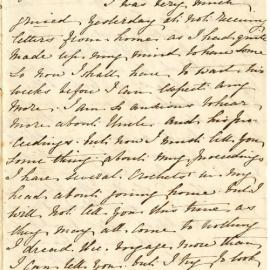 I was very much
grived yesterday at not receiving
letters from home as I had quite
made up my mind to have some
so now I shall have to wait six
weeks before I can expect any
more. I am so anxious to hear
more about Uncle and his pro
ceedings. but now I must tell you
something about my proceedings
I have several Crochets in my
head about joining home but I
will not tell you this time as
they may all come to nothing
I dread the voyage more than
I can tell you. but I try to look